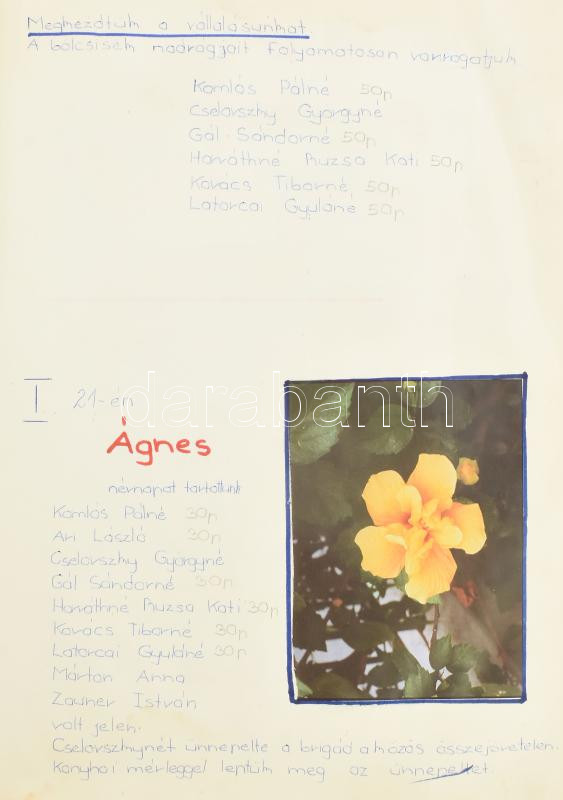 Megkezdtük a vállalásunkat
A bölcsisek nadrágjait folyamatosan varrogatjuk
Komlós Pálné 50p
Cselovszky Györgyné
Gál Sándorné 50p
Horváthné Ruzsa Kati 50p
Kovács Tiborné 50p
Latorcai Gyuláné 50p
I 21-én
Ágnes
névnapot tartottunk
Komlós Pálné 30p
Ari László 30p
Cselovszky Györgyné
Gál Sándorné 30p
Horváthné Ruzsa Kati 30p
Kovács Tiborné 30p
Latorcai Gyuláné 30p
Márton Anna
Zauner István
volt jelen.
Cselovszkynét ünnepelte a brigád a közös összejövetelen.
Konyhai mérleggel leptük meg az ünnepeltet.
darabanth